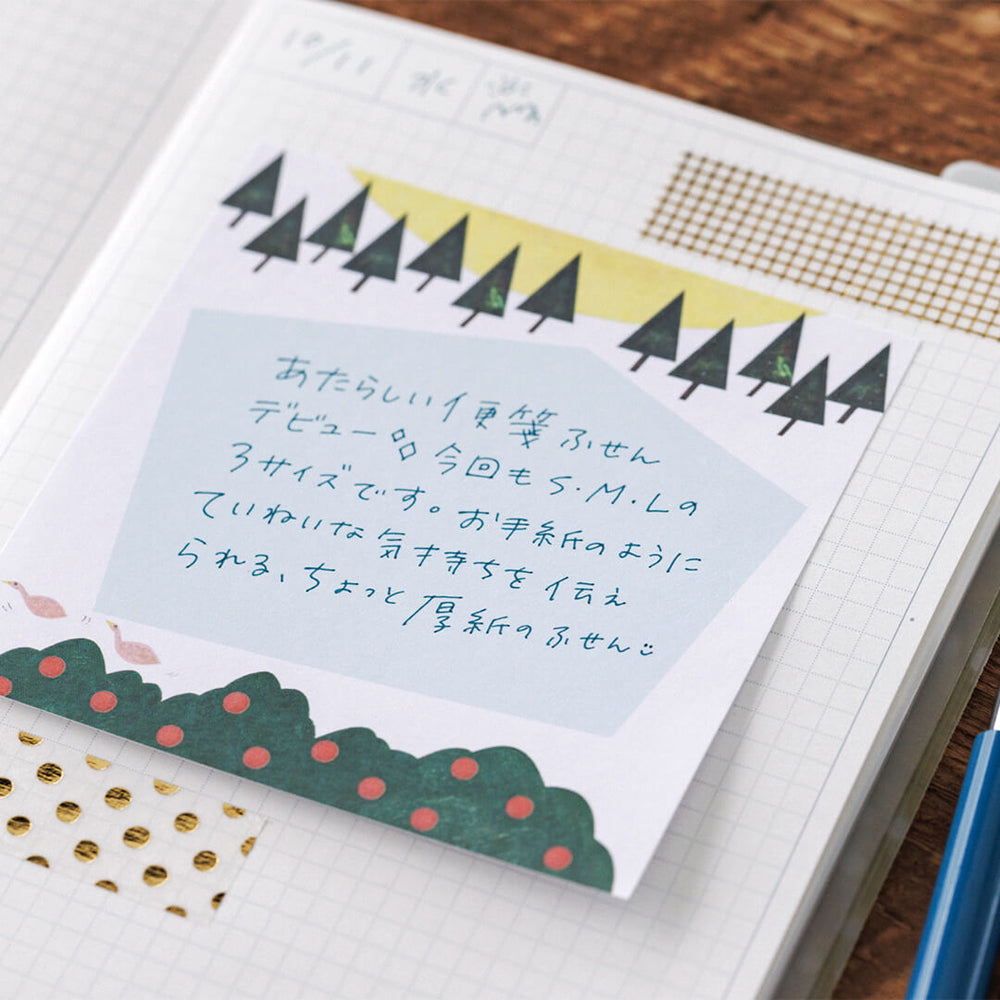 10/11 水
あたらしい便箋ふせん
デビュー 今回もS・M・Lの
3サイズです。お手紙のように
ていねいな気才持ちを伝え
られる、ちょっと
厚紙のふせん